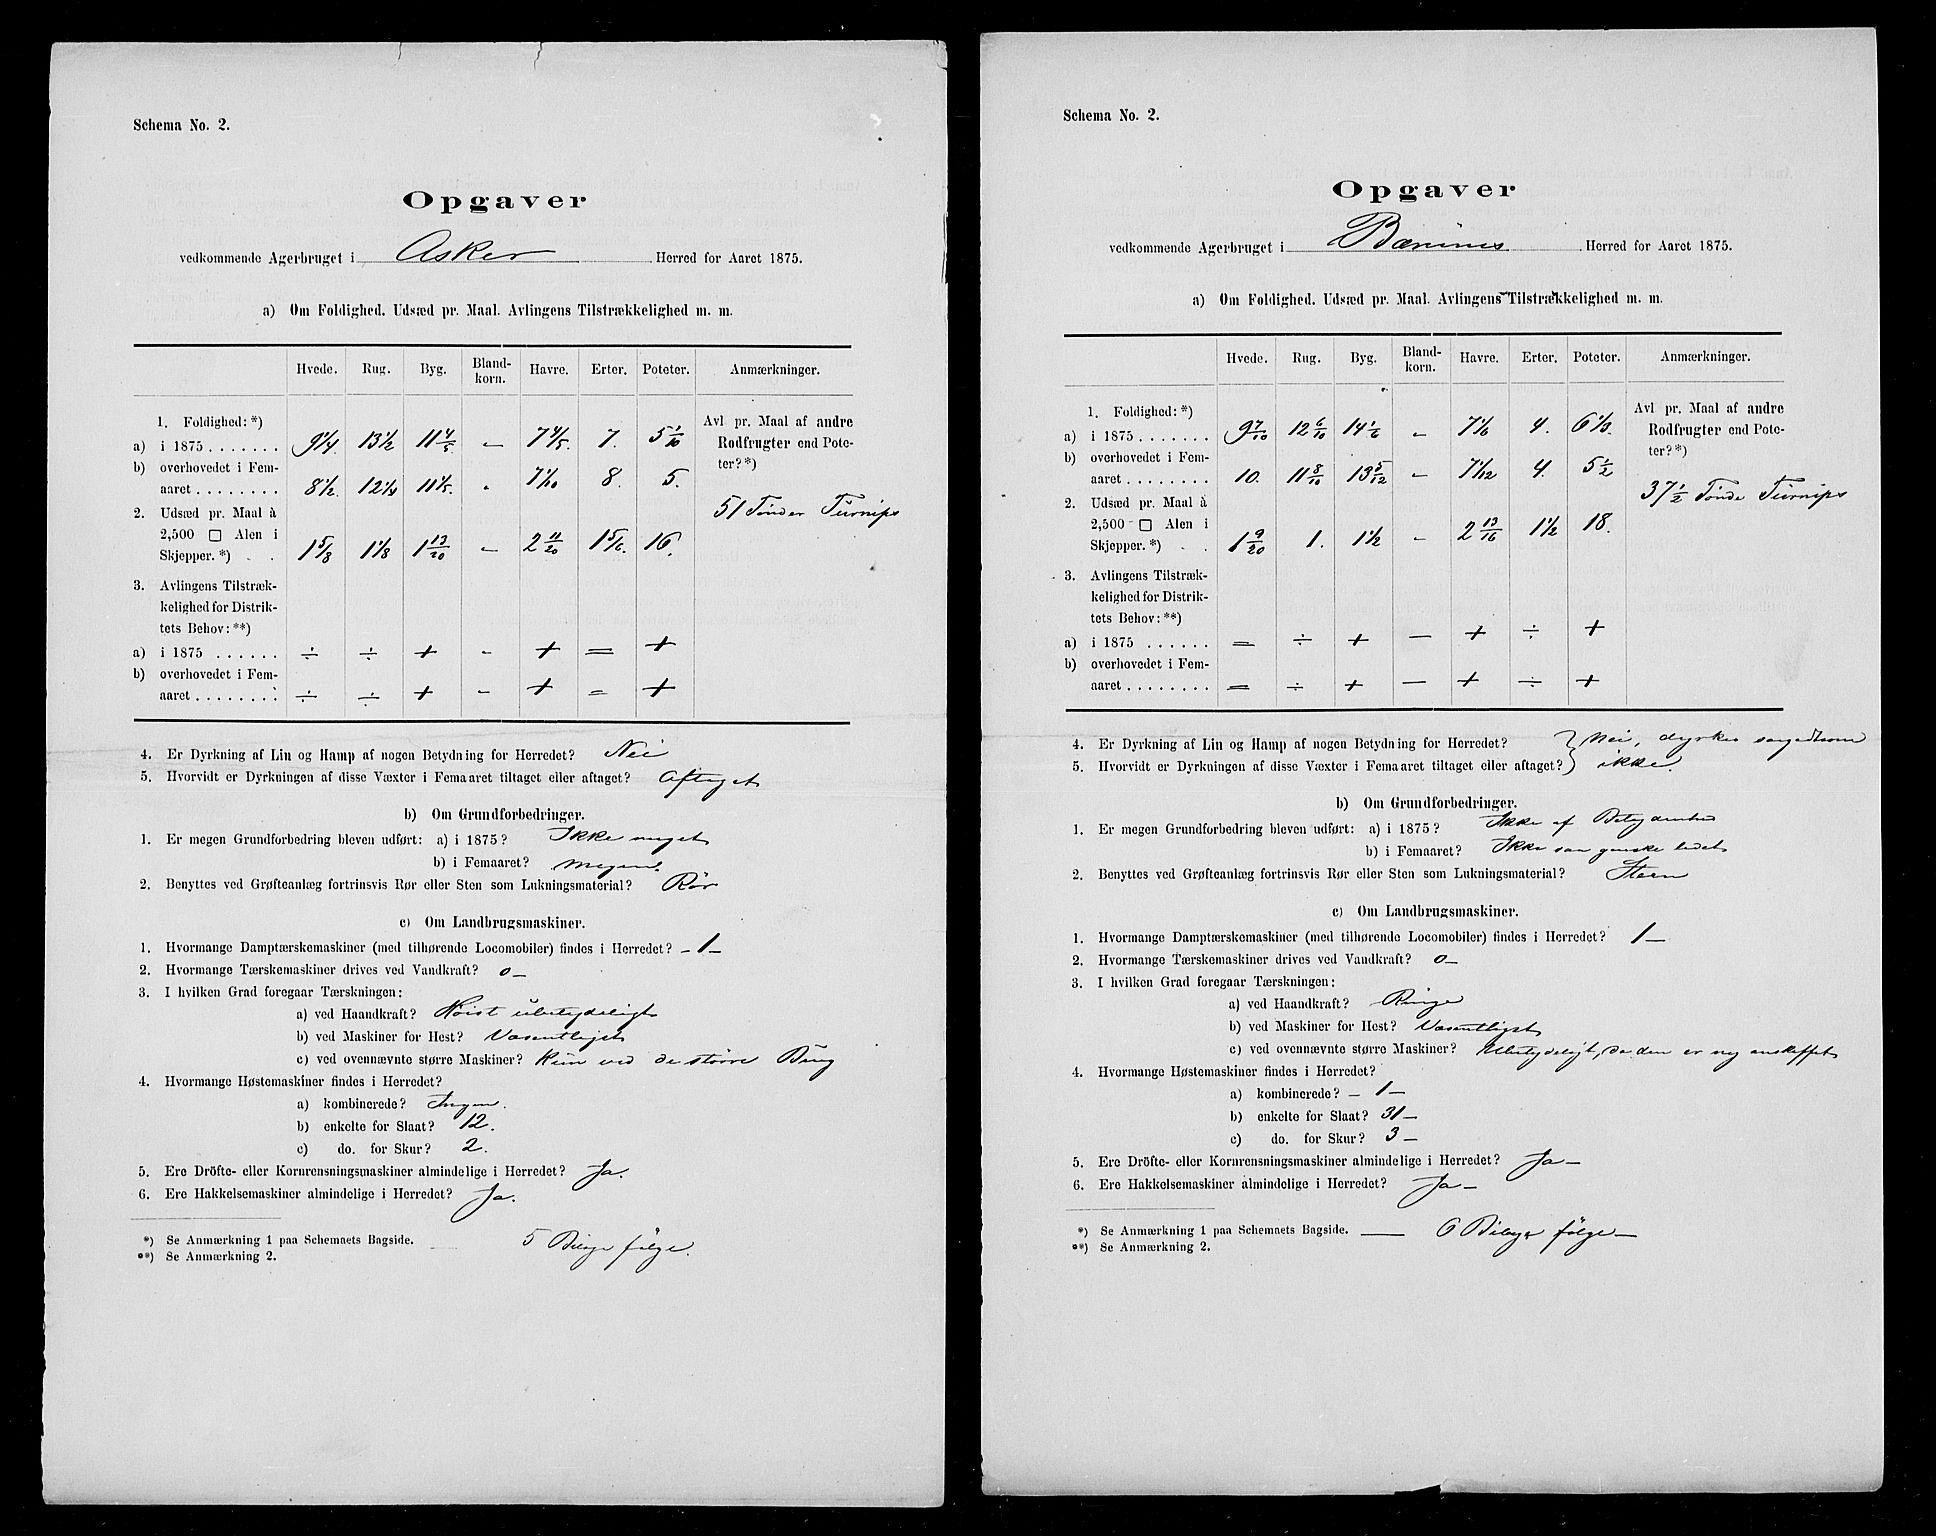 Schema No. 2.
Opgaver
vedkommende Agerbruget i Asker Herred for Aaret 1875.
a) Om Foldighed. Udsæd pr. Maal. Avlingens Tilstrækkelighed m. m.
Hvede. Rug. Byg. Bland-korn. Havre. Erter. Poteter. Anmærkninger.
1. Foldighed: *)
a) i 1875 . . . . . . . 9 1/4 13 1/2 11 4/5 – 7 4/5. 7. 5 1/10
b) overhovedet i Fem-
aaret . . . . . . . . 8 1/2. 12 1/4 11 1/5. „ 7 1/10 8. 5.
2. Udsæd pr. Maal à
2,500 □ Alen i
Skjepper. *) . . 1 5/8 1 1/8 1 13/20 – 2 11/20 1 5/6. 16.
Avl pr. Maal af andre
Rodfrugter end Pote-
ter? *)
51 Tønder Turnips
3. Avlingens Tilstræk-
kelighed for Distrik-
tets Behov: **)
a) i 1875 . . . . . . ÷ ÷ + - + = +
b) overhovedet i Fem-
aaret . . . . . . . . ÷ ÷ + - + = +
4. Er Dyrkning af Lin og Hamp af nogen Betydning for Herredet? Nei
5. Hvorvidt er Dyrkningen af disse Væxter i Femaaret tiltaget eller aftaget? Aftaget
b) Om Grundforbedringer.
1. Er megen Grundforbedring bleven udført: a) i 1875? Ikke meget
b) i Femaaret? Megen.
2. Benyttes ved Grøfteanlæg fortrinsvis Rør eller Sten som Lukningsmaterial? Rör
c) Om Landbrugsmaskiner.
1. Hvormange Damptærskemaskiner (med tilhørende Locomobiler) findes i Herredet? – 1 –
2. Hvormange Tærskemaskiner drives ved Vandkraft? 0 –
3. I hvilken Grad foregaar Tærskningen:
a) ved Haandkraft? Höist ubetydeligt
b) ved Maskiner for Hest? Væsentligst
c) ved ovennævnte större Maskiner? Kun ved de större Brug
4. Hvormange Høstemaskiner findes i Herredet?
a) kombinerede? Ingen.
b) enkelte for Slaat? 12.
c) do. for Skur? 2.
5. Ere Dröfte- eller Kornrensningsmaskiner almindelige i Herredet? Ja.
6. Ere Hakkelsemaskiner almindelige i Herredet? Ja.
*) Se Anmærkning 1 paa Schemaets Bagside. 5 Bilage følge.
**) Se Anmærkning 2.
Schema No. 2.
Opgaver
vedkommende Agerbruget i Bærums Herred for Aaret 1875.
a) Om Foldighed. Udsæd pr. Maal. Avlingens Tilstrækkelighed m. m.
Hvede. Rug. Byg. Bland-korn. Havre. Erter. Poteter. Anmærkninger.
1. Foldighed: *)
a) i 1875 . . . . . . . 9 7/10 12 6/10 14 1/6 „ 7 1/6 4. 6 1/3.
b) overhovedet i Fem-
aaret . . . . . . . . 10. 11 8/10 13 5/12 – 7 1/12 4. 5 1/2
2. Udsæd pr. Maal à
2,500 □ Alen i
Skjepper. *) . . 1 9/20 1. 1 1/2 – 2 13/16 1 1/2 18.
Avl pr. Maal af andre
Rodfrugter end Pote-
ter? *)
37 1/2 Tønde Turnips
3. Avlingens Tilstræk-
kelighed for Distrik-
tets Behov: **)
a) i 1875 . . . . . . = ÷ + — + ÷ +
b) overhovedet i Fem-
aaret . . . . . . . . = ÷ + — + ÷ +
4. Er Dyrkning af Lin og Hamp af nogen Betydning for Herredet? } Nei, dyrkes saagodtsom
5. Hvorvidt er Dyrkningen af disse Væxter i Femaaret tiltaget eller aftaget? } ikke.
b) Om Grundforbedringer.
1. Er megen Grundforbedring bleven udført: a) i 1875? Ikke af Betydenhed
b) i Femaaret? Ikke saa ganske lidet
2. Benyttes ved Grøfteanlæg fortrinsvis Rør eller Sten som Lukningsmaterial? Steen
c) Om Landbrugsmaskiner.
1. Hvormange Damptærskemaskiner (med tilhørende Locomobiler) findes i Herredet? 1 –
2. Hvormange Tærskemaskiner drives ved Vandkraft? 0 –
3. I hvilken Grad foregaar Tærskningen:
a) ved Haandkraft? Ringe
b) ved Maskiner for Hest? Væsentligst
c) ved ovennævnte större Maskiner? Ubetydeligt, da den er ny anskaffet
4. Hvormange Høstemaskiner findes i Herredet?
a) kombinerede? – 1 –
b) enkelte for Slaat? 31 –
c) do. for Skur? 3 –
5. Ere Dröfte- eller Kornrensningsmaskiner almindelige i Herredet? Ja –
6. Ere Hakkelsemaskiner almindelige i Herredet? Ja –
*) Se Anmærkning 1 paa Schemaets Bagside. — 6 Bilage følge –
**) Se Anmærkning 2.